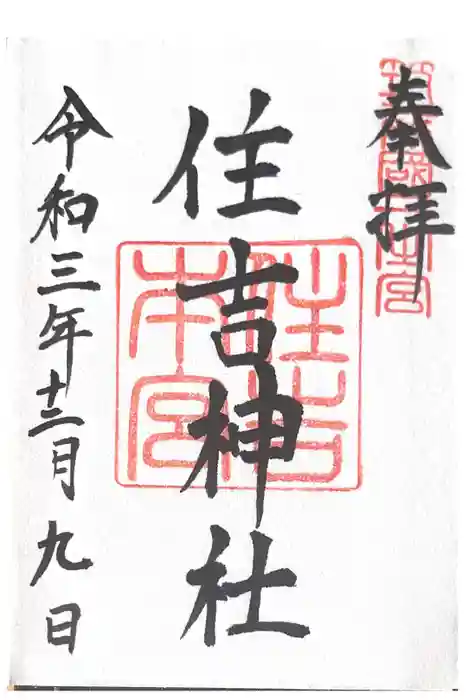 奉拝
住吉神社
住吉
本宮
令和三年十二月九日